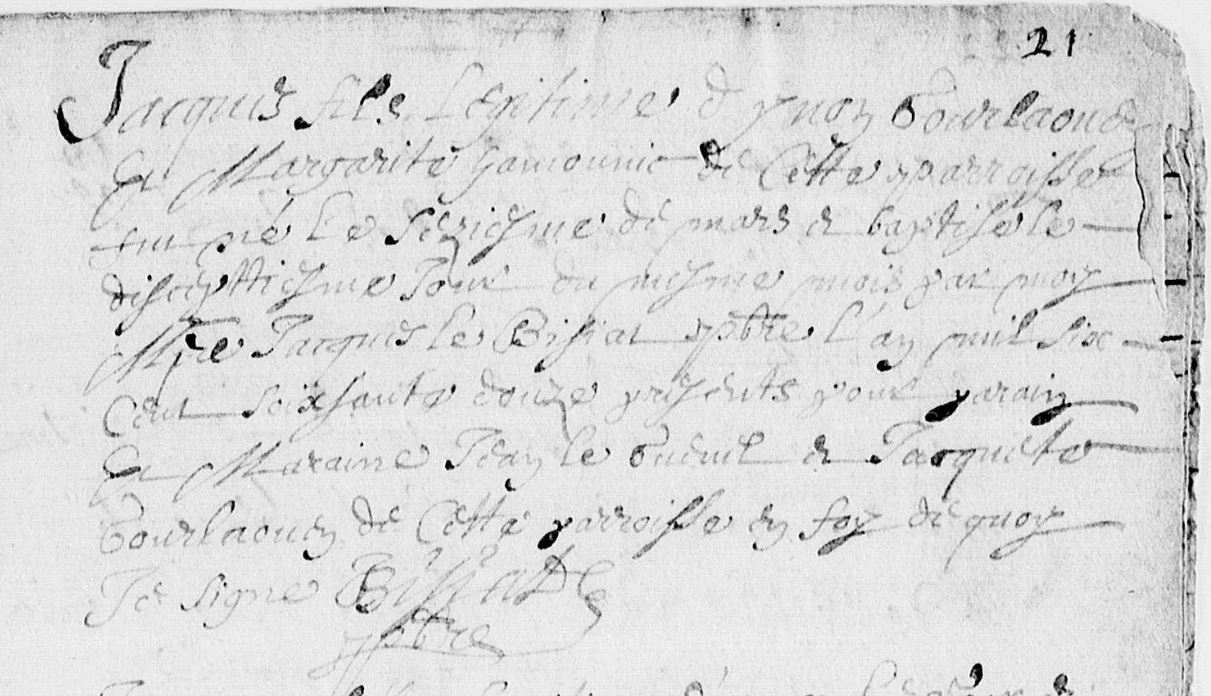 21
Jacques fils Legitime d yuon Gourlaouen
Et Margarite hamounic de Cette parroisse
fut né Le séziesme de mars et baptisé le
disepttiesme Jour du mesme mois par moy
Mre Jacques le Bihat pbtre l'an mil six
Cent soixsante douze présents pour parain
Et Maraine Jean le et Jacquete
Gourlaouen de Cette parroisse en foy de quoy
Je signe
pbtre